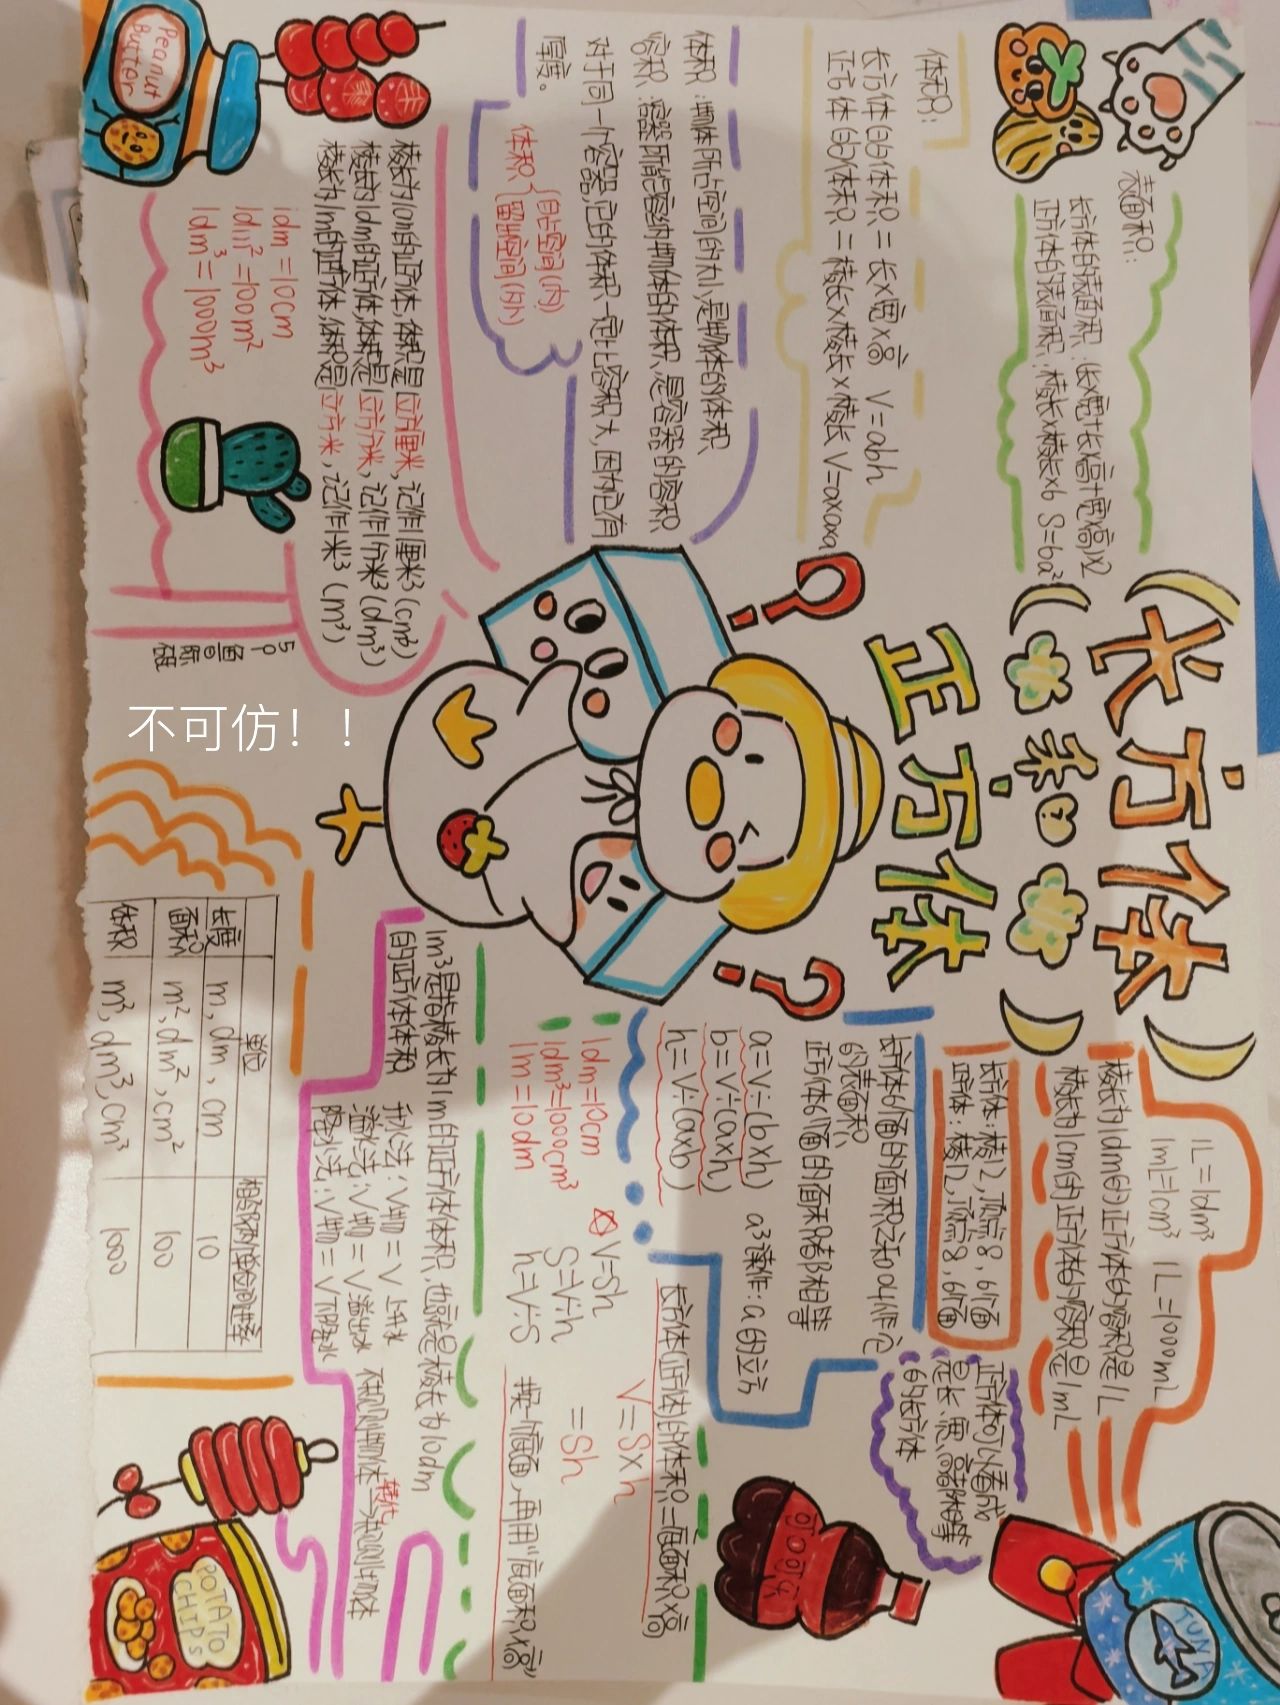 长方体
和
正方体
表面积:
长方体的表面积:(长x宽+长x高+宽x高)x2
正方体的表面积:棱长x棱长x6 S=6a²
体积:
长方体的体积=长x宽x高 V=abh
正方体的体积=棱长x棱长x棱长 V=axaxa
体积:物体所占空间的大小,是物体的体积
容积:容器所能容纳物体的体积,是容器的容积
对于同一个容器,它的体积一定比容积大,因为它有
厚度。
体积{自占空间(内)
留出空间(外)
棱长为1cm的正方体,体积是1立方厘米,记作1厘米³(cm³)
棱长为1dm的正方体,体积是1立方分米,记作1分米³(dm³)
棱长为1m的正方体,体积是1立方米,记作1米³(m³)
1dm=10cm
Peanut
Butter
不可仿！！
1L=1dm³
1mL=1cm³ 1L=1000mL
棱长为1dm的正方体的容积是1L
棱长为1cm的正方体的容积是1mL
长方体:棱12,顶点8,6个面
正方体:棱12,顶点8,6个面
正方体可以看成
是长、宽、高都相等
的长方体
长方体6个面的面积之和叫作它
的表面积
正方体6个面的面积都相等
a=V÷(bxh)
b=V÷(axh)
h=V÷(axb)
a³读作:a的立方
长方体(正方体)的体积=底面积x高
V=Sxh
=Sh
V=Sh
S=V÷h
h=V÷S
1dm=10cm
1dm³=1000cm³
1m=10dm
换一个底面,再用"底面积x高"
1m³是指棱长为1m的正方体体积,也就是棱长为10dm
的正方体体积
升水法:V物=V上升水
溢水法:V物=V溢出水
不规则物体→规则物体
转化
单位
长度 m,dm,cm 10
面积 m²,dm²,cm² 100
体积 m³,dm³,cm³ 1000
POTATO
CHIPS
TUNA